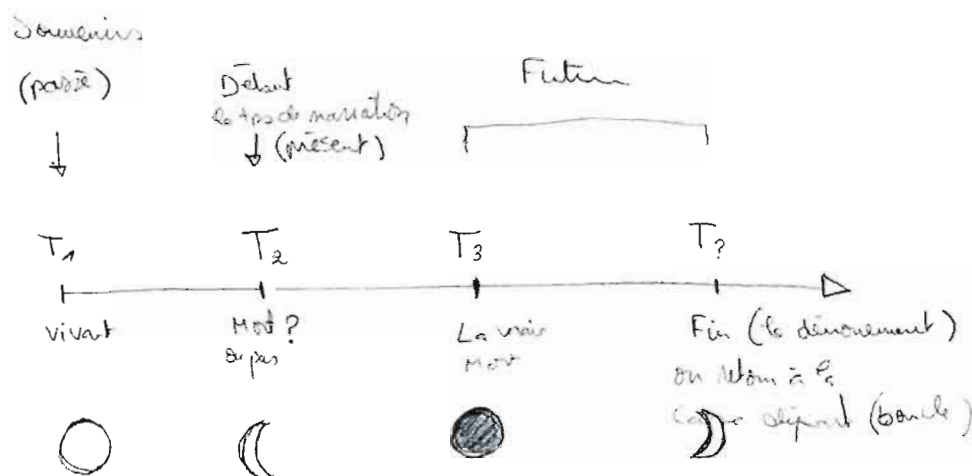 Souvenirs
(passé)
Début
le tps de narration
(présent)
Futur
T1
T2
T3
T?
vivant
Mort ?
ou pas
La vraie
Mort
Fin (le dénouement)
ou retour à la
case départ (boucle)